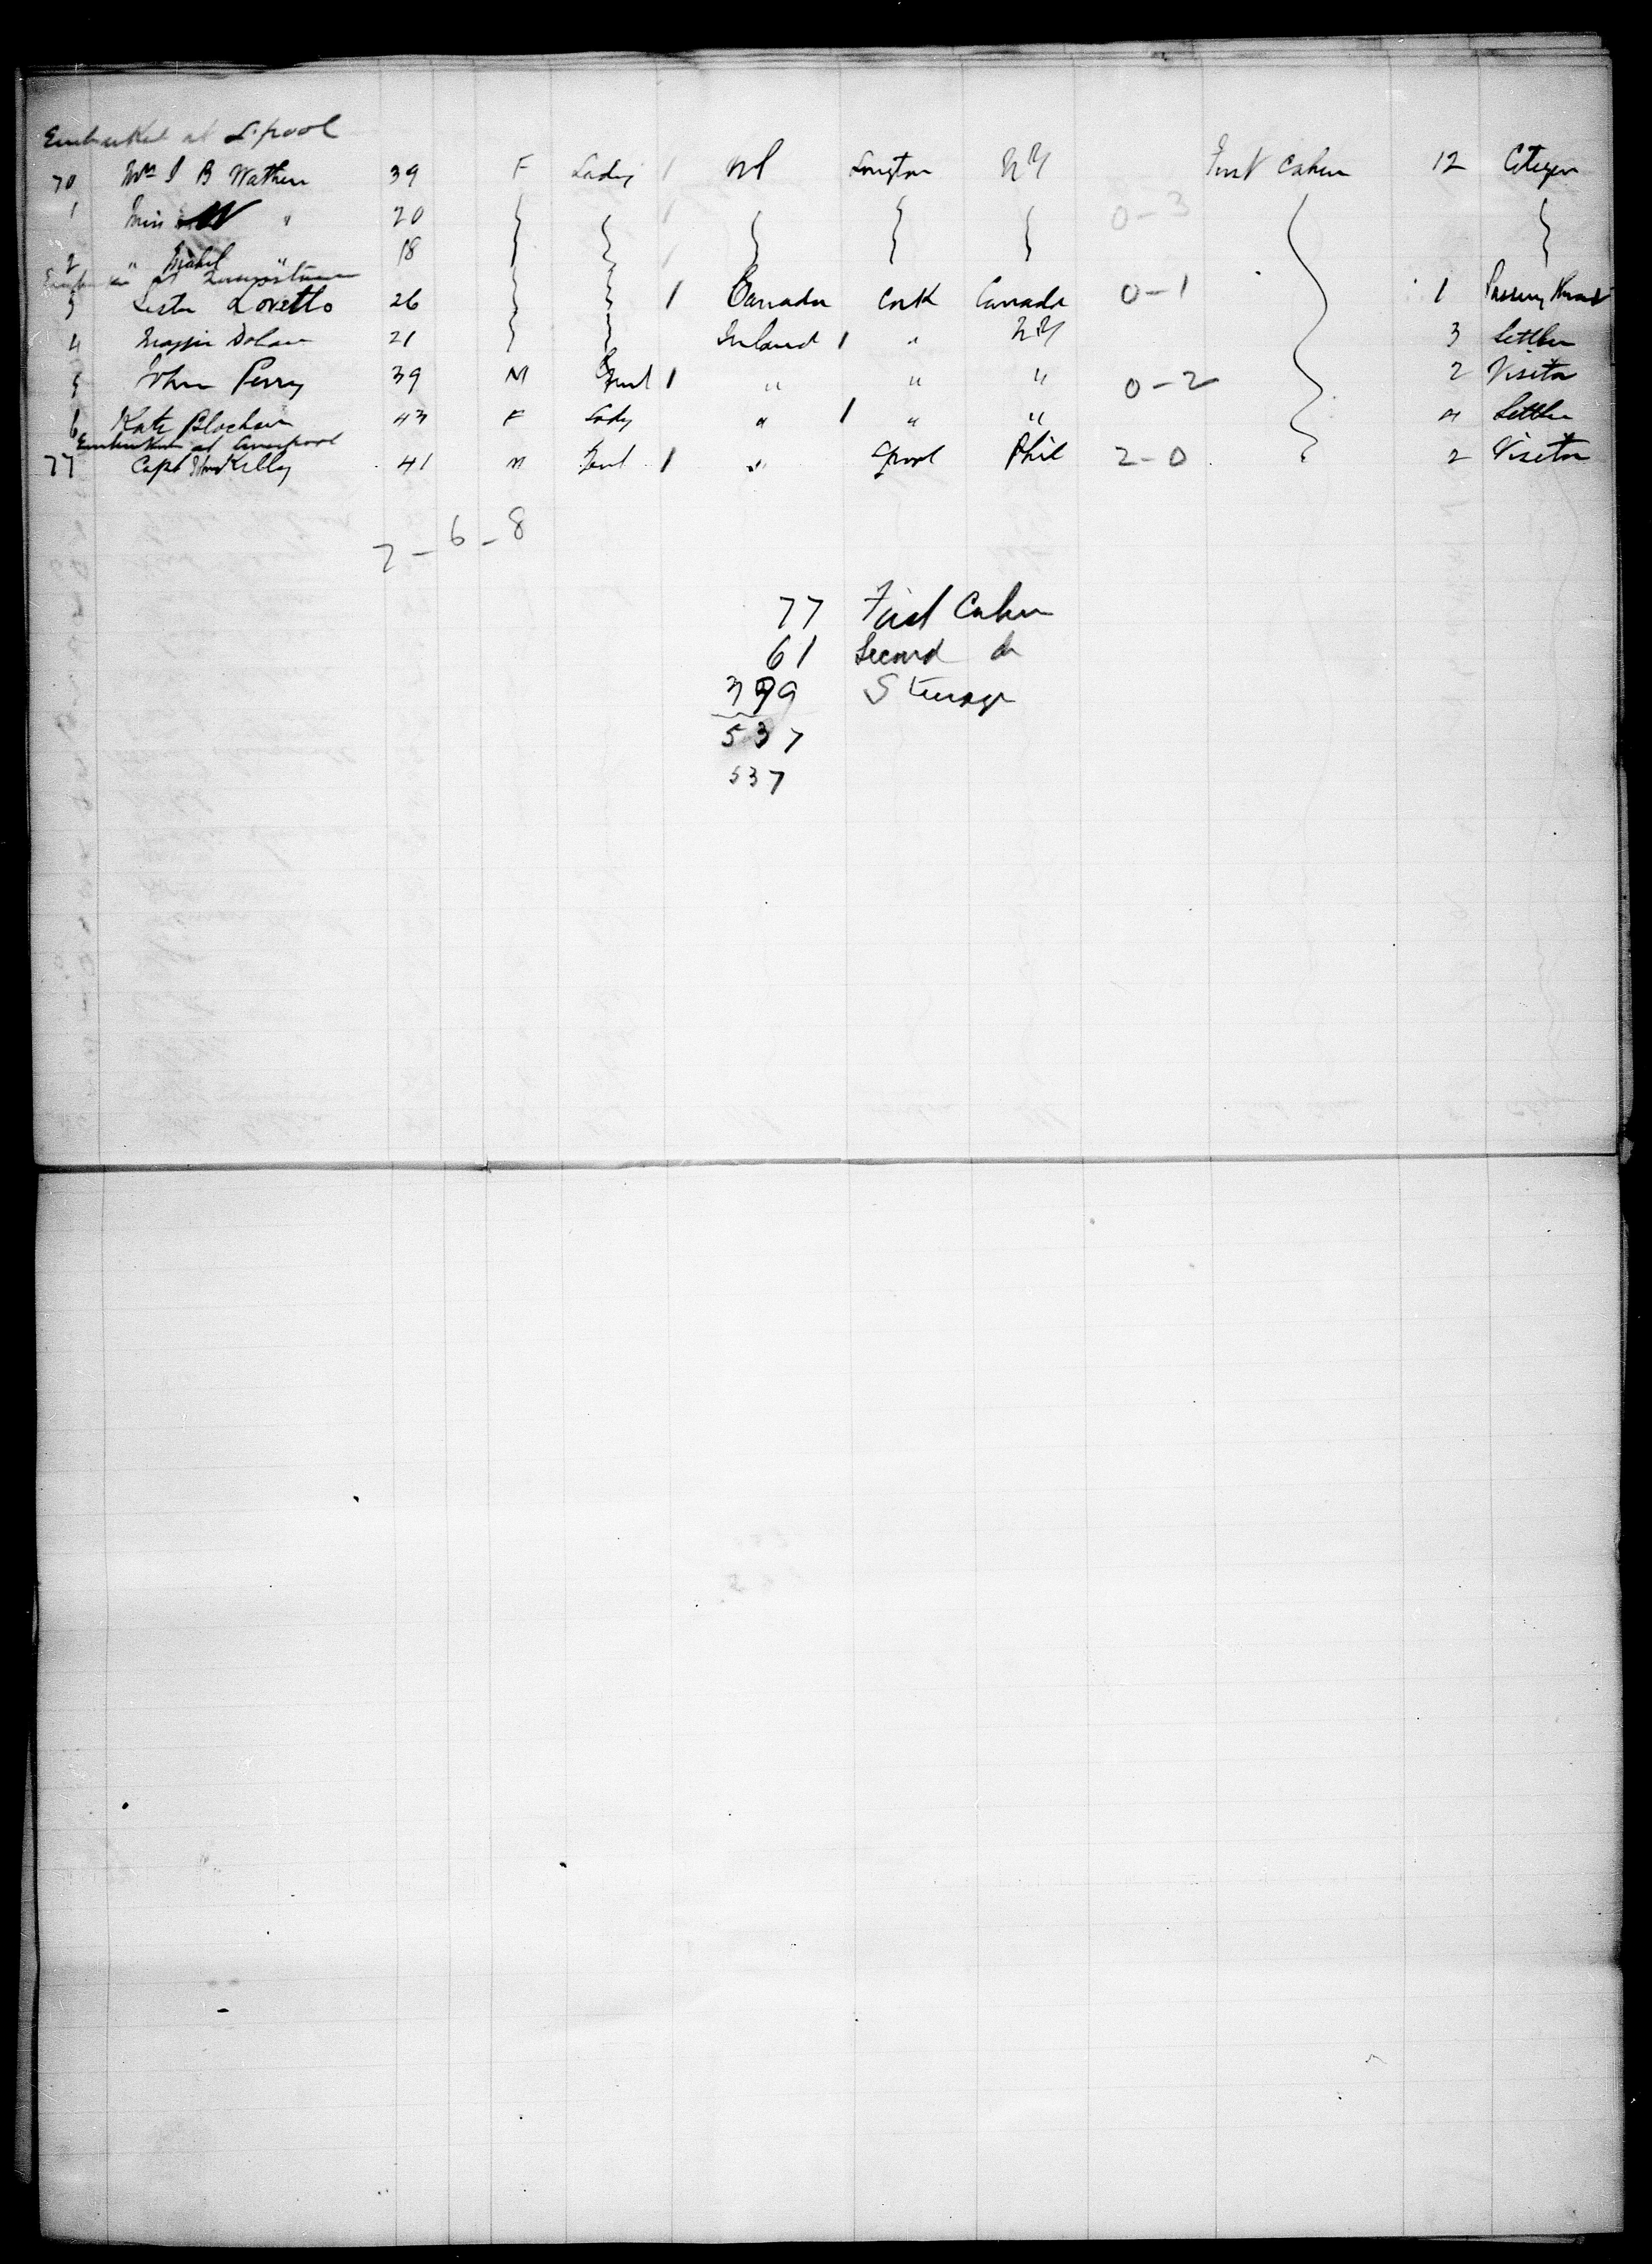 Embarked at L'pool
70 Mrs J B Wathen 39 F Lady 1 NY London NY First Cabin 12 Citizen
1 Miss W " 20 0-3
2 " Mabel " 18
Embarked at Queenstown
3 Sister Loretto 26 1 Canada Cork Canada 0-1 1 Passing thro
4 Maggie Dolan 21 Ireland 1 " NY 3 Settler
5 John Perry 39 M Gent 1 " " " 0-2 2 Visitor
6 Kate 43 F Lady " 1 " " " Settler
Embarked at Liverpool
77 Capt Kelly 41 M Gent 1 " Lpool Phil 2-0 2 Visitor
7-6-8
77 First Cabin
61 Second do
399 Steerage
537
537